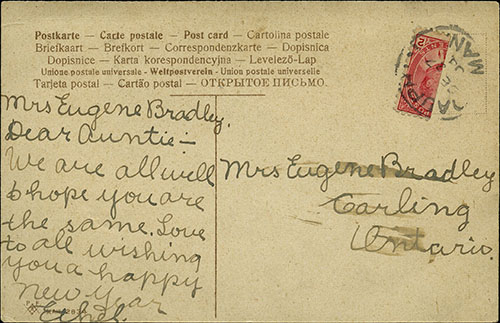 Postkarte — Carte postale — Post card — Cartolina postale
Briefkaart — Brefkort — Correspondenzkarte — Dopisnica
Dopisnice — Karta korespondencyjna — Levelező-Lap
Unione postale universale - Weltpostverein - Union postale universelle
Tarjeta postal — Cartão postal — ОТКРЫТОЕ ПИСЬМО.
MAN
Mrs Eugene Bradley.
Dear Auntie:—
We are all well
& hope you are
the same. Love
to all wishing
you a happy
New Year
Ethel.
Mrs Eugene Bradley
Carling
Ontario.